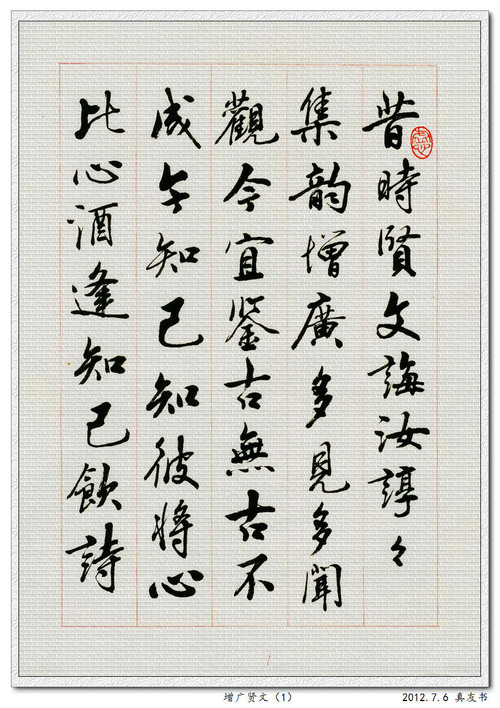 昔時賢文誨汝諄々
集韵增廣多見多聞
觀今宜鉴古無古不
成今知己知彼将心
比心酒逢知己飲詩
增广贤文（1）
2012.7.6 真友书